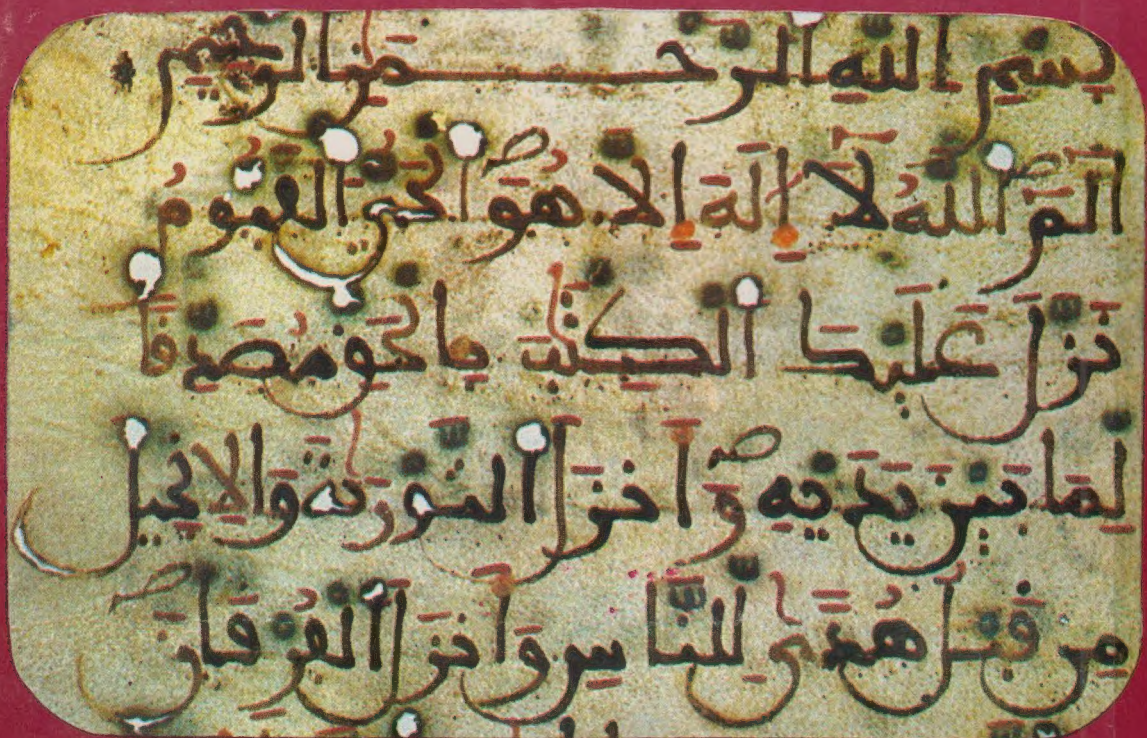 بِسْمِ اللَّهِ الرَّحْمَنِ الرَّحِيمِ
الٓمٓ اللَّهُ لَآ إِلَهَ إِلَّا هُوَ الْحَيُّ الْقَيُّومُ
نَزَّلَ عَلَيْكَ الْكِتَٰبَ بِالْحَقِّ مُصَدِّقًا
لِّمَا بَيْنَ يَدَيْهِ وَأَنزَلَ التَّوْرَىٰةَ وَالْإِنجِيلَ
مِن قَبْلُ هُدًى لِّلنَّاسِ وَأَنزَلَ الْفُرْقَانَ